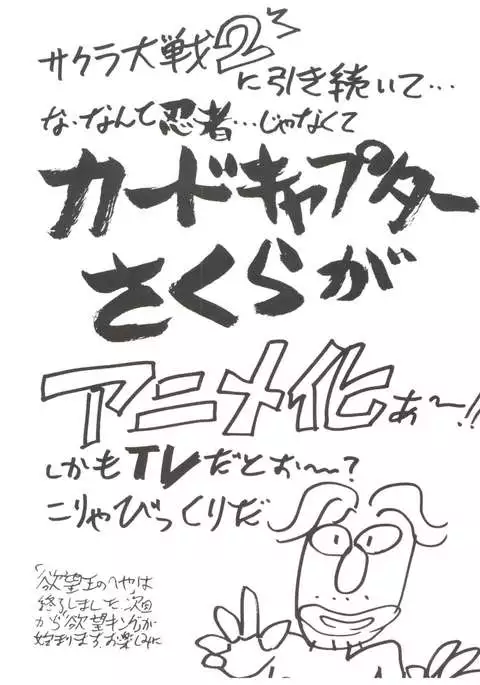 サクラ大戦2
に引き続いて…
な、なんて忍者…じゃなくて
カードキャプター
さくらが
アニメ化ぁ〜!!
しかもTVだとぉ〜?
こりゃびっくりだ
「欲望王のへや」は
終了しました。次回
から「欲望キング」が
始まります。お楽しみに